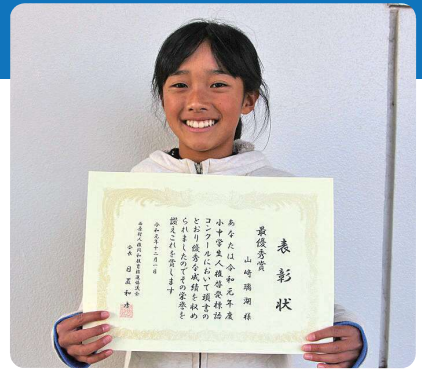 表彰状
最優秀賞
山崎 璃湖 様
あなたは令和元年度
小中学生人権啓発標語
コンクールにおいて頭書の
とおり優秀な成績を収め
られましたのでその栄誉を
讃えこれを賞します
令和元年十二月一日
西原村人権同和教育推進協議会
会長 日置和彦